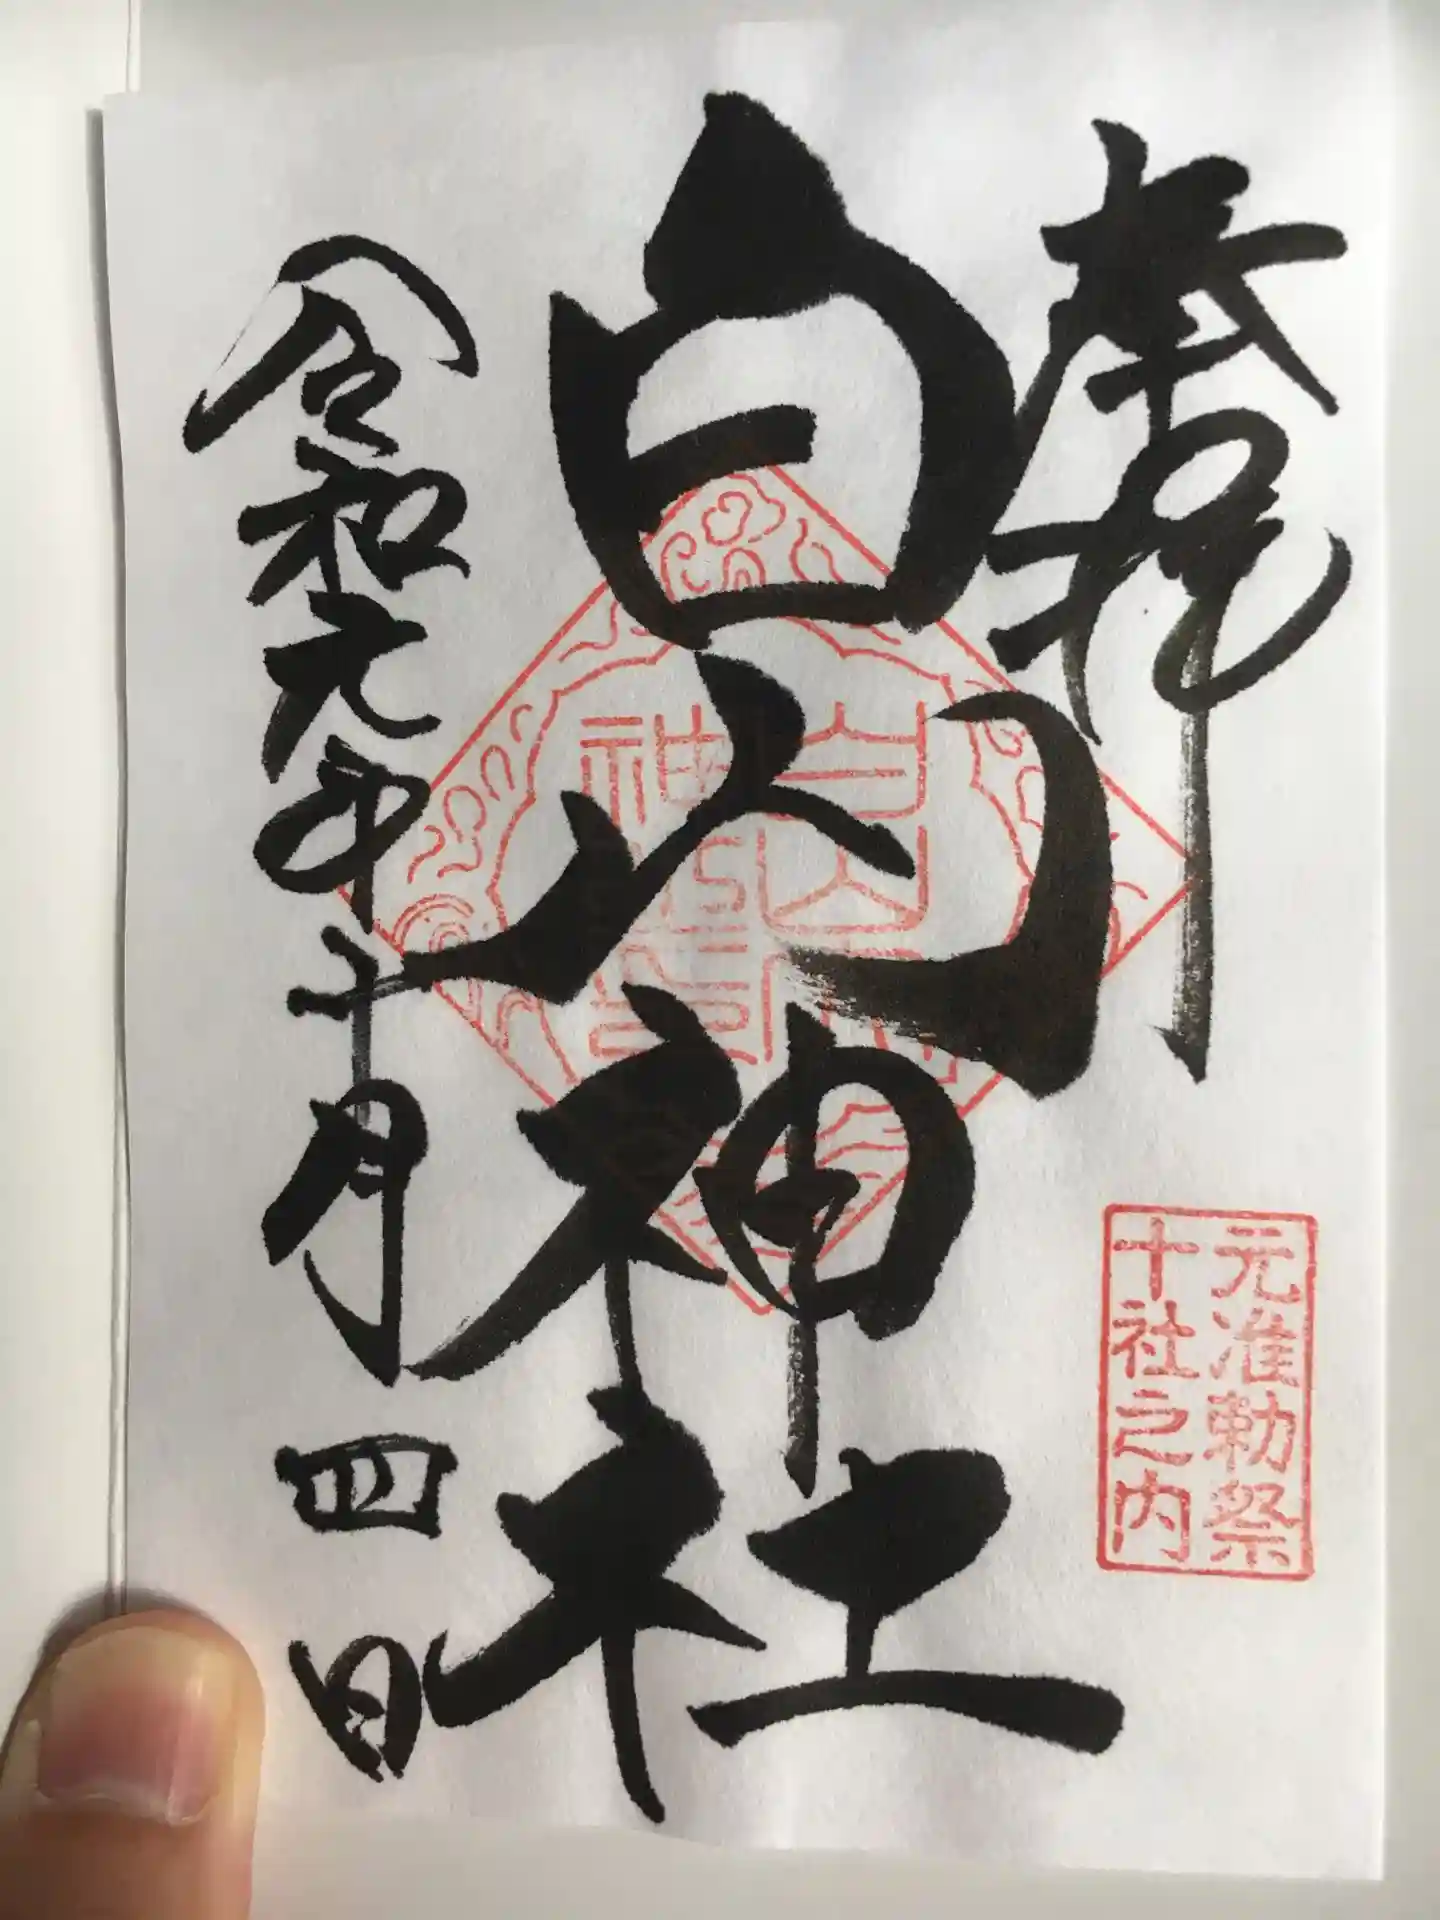 奉拝
白山神社
令和元年十月四日
元准勅祭
十社之内